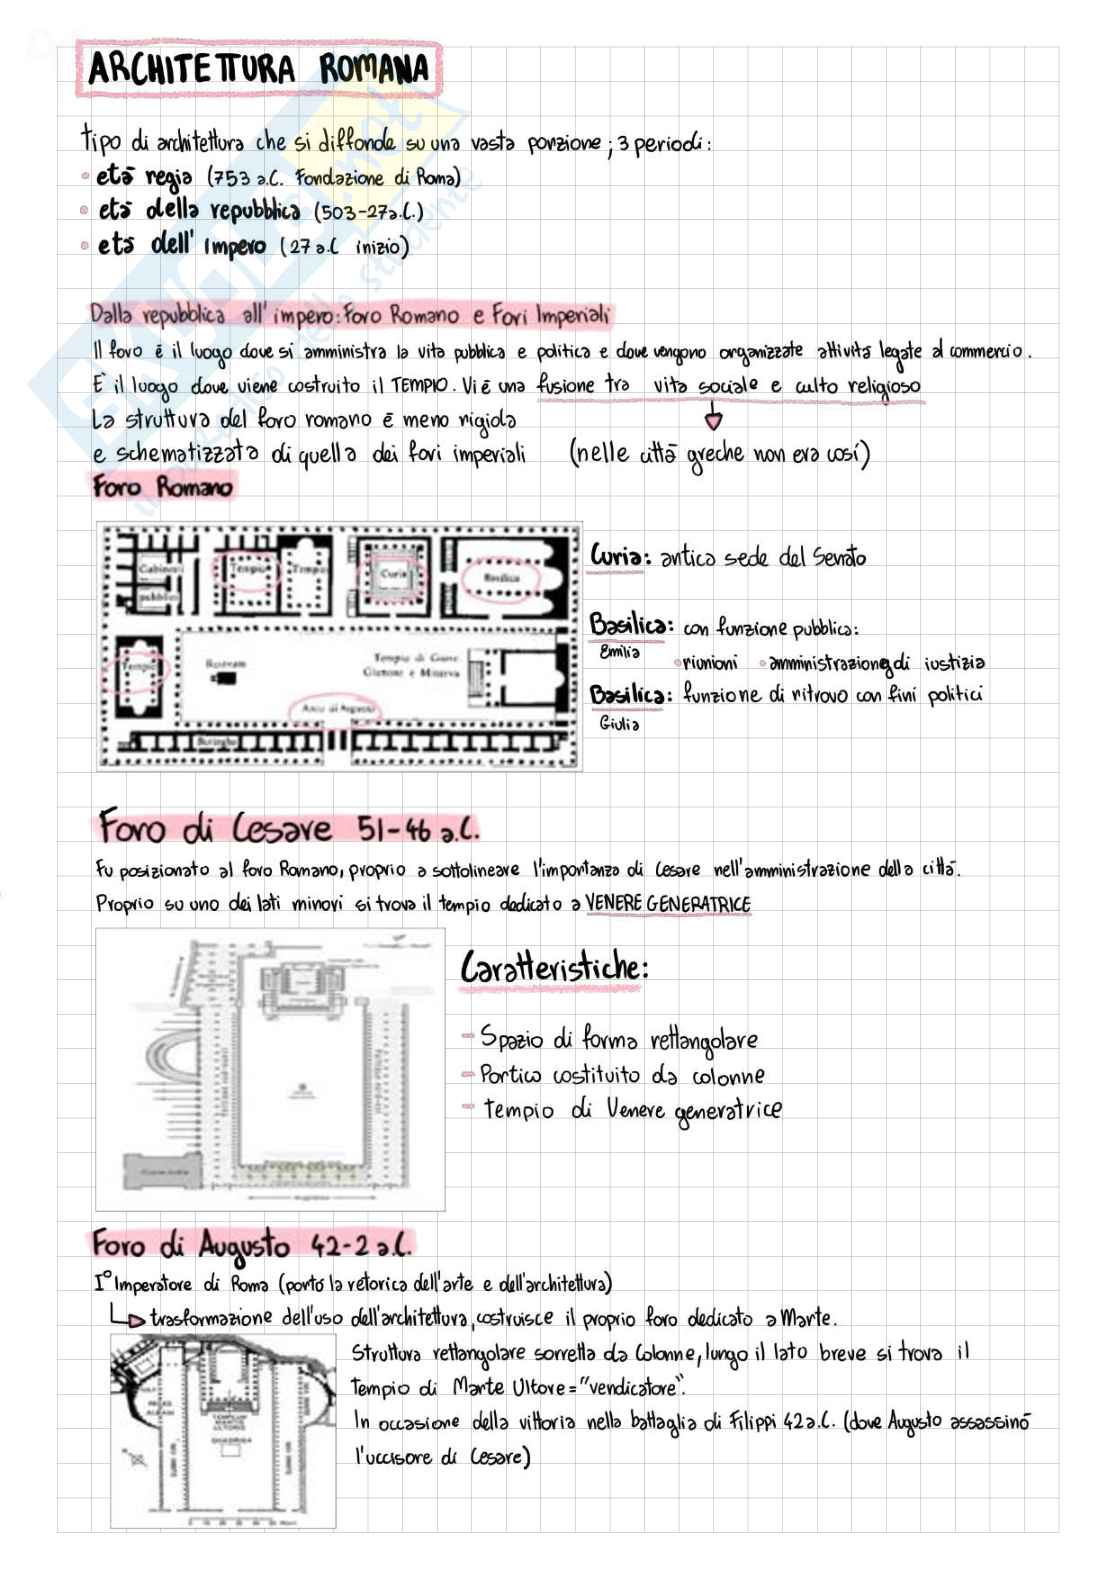 ARCHITETTURA ROMANA
tipo di architettura che si diffonde su una vasta porzione; 3 periodi:
• età regia (753 a.C. Fondazione di Roma)
• età della repubblica (503-27a.C.)
• età dell' Impero (27 a.C inizio)
Dalla repubblica all' impero: Foro Romano e Fori Imperiali
Il foro è il luogo dove si amministra la vita pubblica e politica e dove vengono organizzate attività legate al commercio.
E' il luogo dove viene costruito il TEMPIO. Vi è una fusione tra vita sociale e culto religioso
La struttura del foro romano è meno rigida
e schematizzata di quella dei fori imperiali (nelle città greche non era così)
Foro Romano
Gabinetti
pubblici
Tempio
Tempio
Curia
Basilica
Tempio
Rostrum
Tempio di Giove
Giunone e Minerva
Arco di Augusto
Botteghe
Curia: antica sede del Senato
Basilica: con funzione pubblica:
Emilia
• riunioni • amministrazione di iustizia
Basilica: funzione di ritrovo con fini politici
Giulia
Foro di Cesare 51-46 a.C.
Fu posizionato al foro Romano, proprio a sottolineare l'importanza di Cesare nell'amministrazione della città.
Proprio su uno dei lati minori si trova il tempio dedicato a VENERE GENERATRICE
Caratteristiche:
- Spazio di forma rettangolare
- Portico costituito da colonne
- tempio di Venere generatrice
Foro di Augusto 42-2 a.C.
I° Imperatore di Roma (portò la retorica dell'arte e dell'architettura)
trasformazione dell'uso dell'architettura, costruisce il proprio foro dedicato a Marte.
Struttura rettangolare sorretta da Colonne, lungo il lato breve si trova il
tempio di Marte Ultore="vendicatore".
In occasione della vittoria nella battaglia di Filippi 42a.C. (dove Augusto assassinò
l'uccisore di Cesare)
TEMPLUM
MARTIS
ULTORIS
QUADRIGA